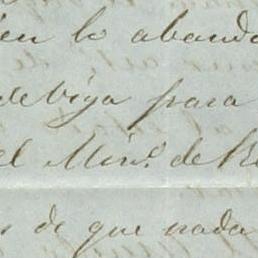 ien lo abando
debiga para
el Minº. de R
s de que nada